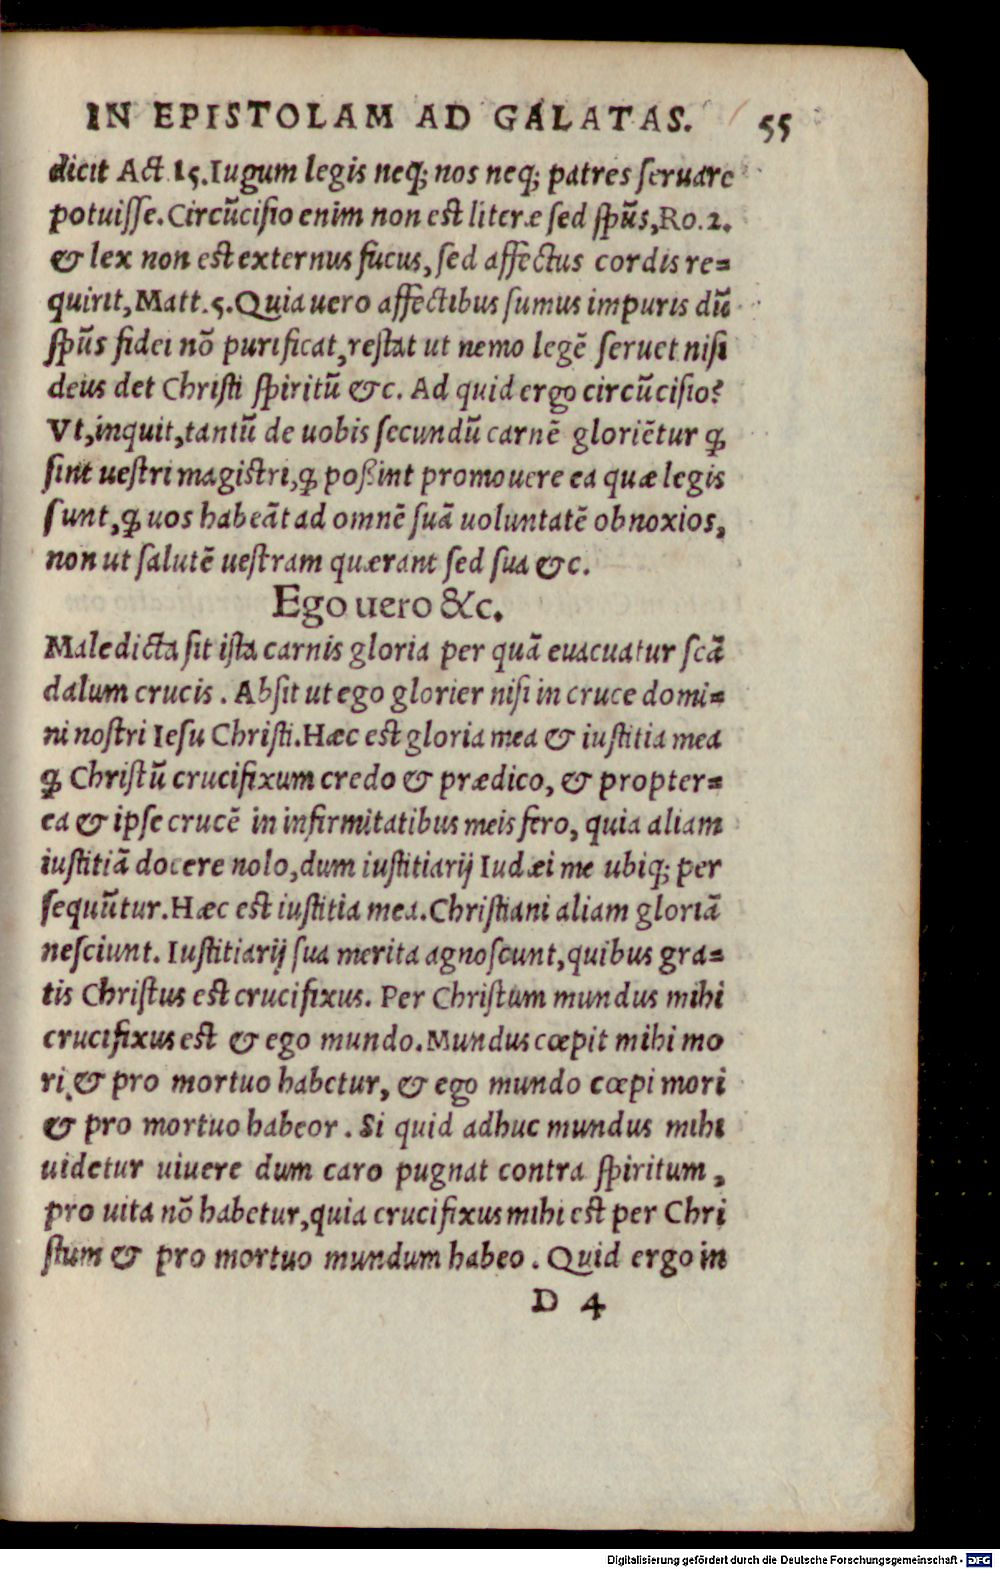 IN EPISTOLAM AD GALATAS. 55
dicit Act. 15. Iugum legis neq; nos neq; patres ſeruare
potuiſſe. Circũciſio enim non eſt literæ ſed ſpũs, Ro. 2.
& lex non eſt externus fucus, ſed affectus cordis re=
quirit, Matt. 5. Quia uero affectibus ſumus impuris dũ
ſpũs fidei nõ purificat, reſtat ut nemo legẽ ſeruet niſi
deus det Chriſti ſpiritũ &c. Ad quid ergo circũciſio?
Vt, inquit, tantũ de uobis ſecundũ carnẽ gloriẽtur ꝙ
ſint ueſtri magiſtri, ꝙ poßint promouere ea quæ legis
ſunt, ꝙ uos habeãt ad omnẽ ſuã uoluntatẽ obnoxios,
non ut ſalutẽ ueſtram quærant ſed ſua &c.
Ego uero &c.
Maledicta ſit iſta carnis gloria per quã euacuatur ſcã
dalum crucis. Abſit ut ego glorier niſi in cruce domi=
ni noſtri Ieſu Chriſti. Hæc eſt gloria mea & iuſtitia mea
ꝙ Chriſtũ crucifixum credo & prædico, & propter=
ea & ipſe crucẽ in infirmitatibus meis fero, quia aliam
iuſtitiã docere nolo, dum iuſtitiarij Iudæi me ubiq; per
ſequũtur. Hæc eſt iuſtitia mea. Chriſtiani aliam gloriã
neſciunt. Iuſtitiarij ſua merita agnoſcunt, quibus gra=
tis Chriſtus eſt crucifixus. Per Chriſtum mundus mihi
crucifixus eſt & ego mundo. Mundus cœpit mihi mo
ri, & pro mortuo habetur, & ego mundo cœpi mori
& pro mortuo habeor. Si quid adhuc mundus mihi
uidetur uiuere dum caro pugnat contra ſpiritum,
pro uita nõ habetur, quia crucifixus mihi eſt per Chri
ſtum & pro mortuo mundum habeo. Quid ergo in
D 4
Digitalisierung gefördert durch die Deutsche Forschungsgemeinschaft - DFG